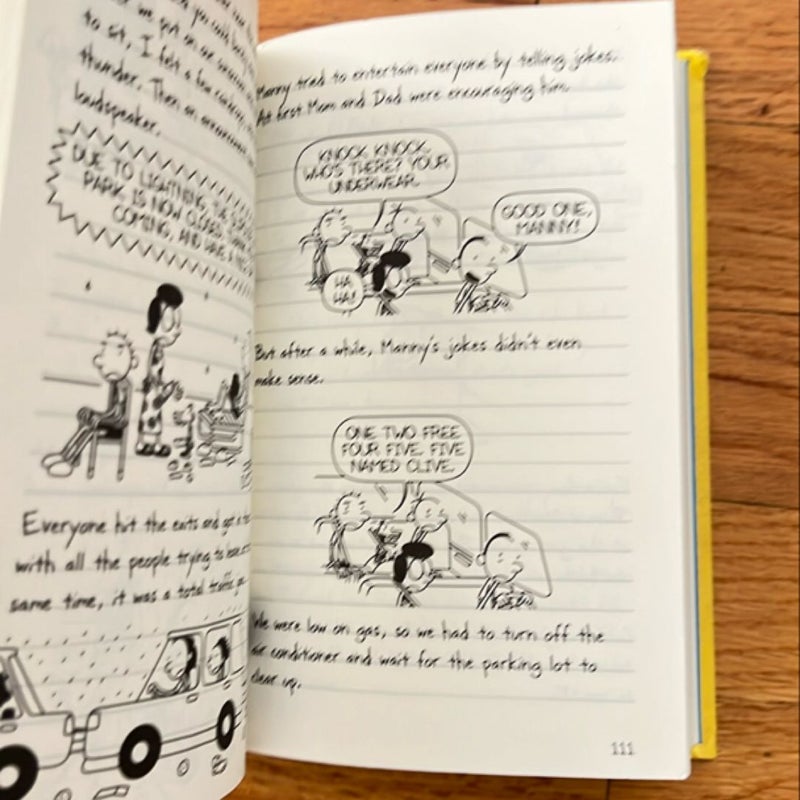 to sit, I felt a few
thunder. Then an
loudspeaker.
DUE TO LIGHTNING, THE
PARK IS NOW CLOSED.
COMING, AND HAVE A
Everyone hit the exits and
with all the people trying to
same time, it was a total traffic
Manny tried to entertain everyone by telling jokes.
At first Mom and Dad were encouraging him.
KNOCK KNOCK.
WHO'S THERE? YOUR
UNDERWEAR.
GOOD ONE,
MANNY!
HA
HA!
But after a while, Manny's jokes didn't even
make sense.
ONE TWO FREE
FOUR FIVE. FIVE
NAMED CLIVE.
We were low on gas, so we had to turn off the
air conditioner and wait for the parking lot to
clear up.
111